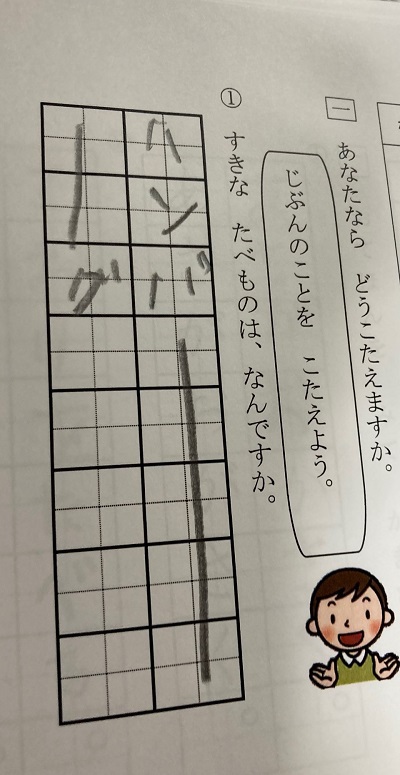 一 あなたなら どうこたえますか。
じぶんのことを こたえよう。
① すきな たべものは、なんですか。
ハンバー
ーグ